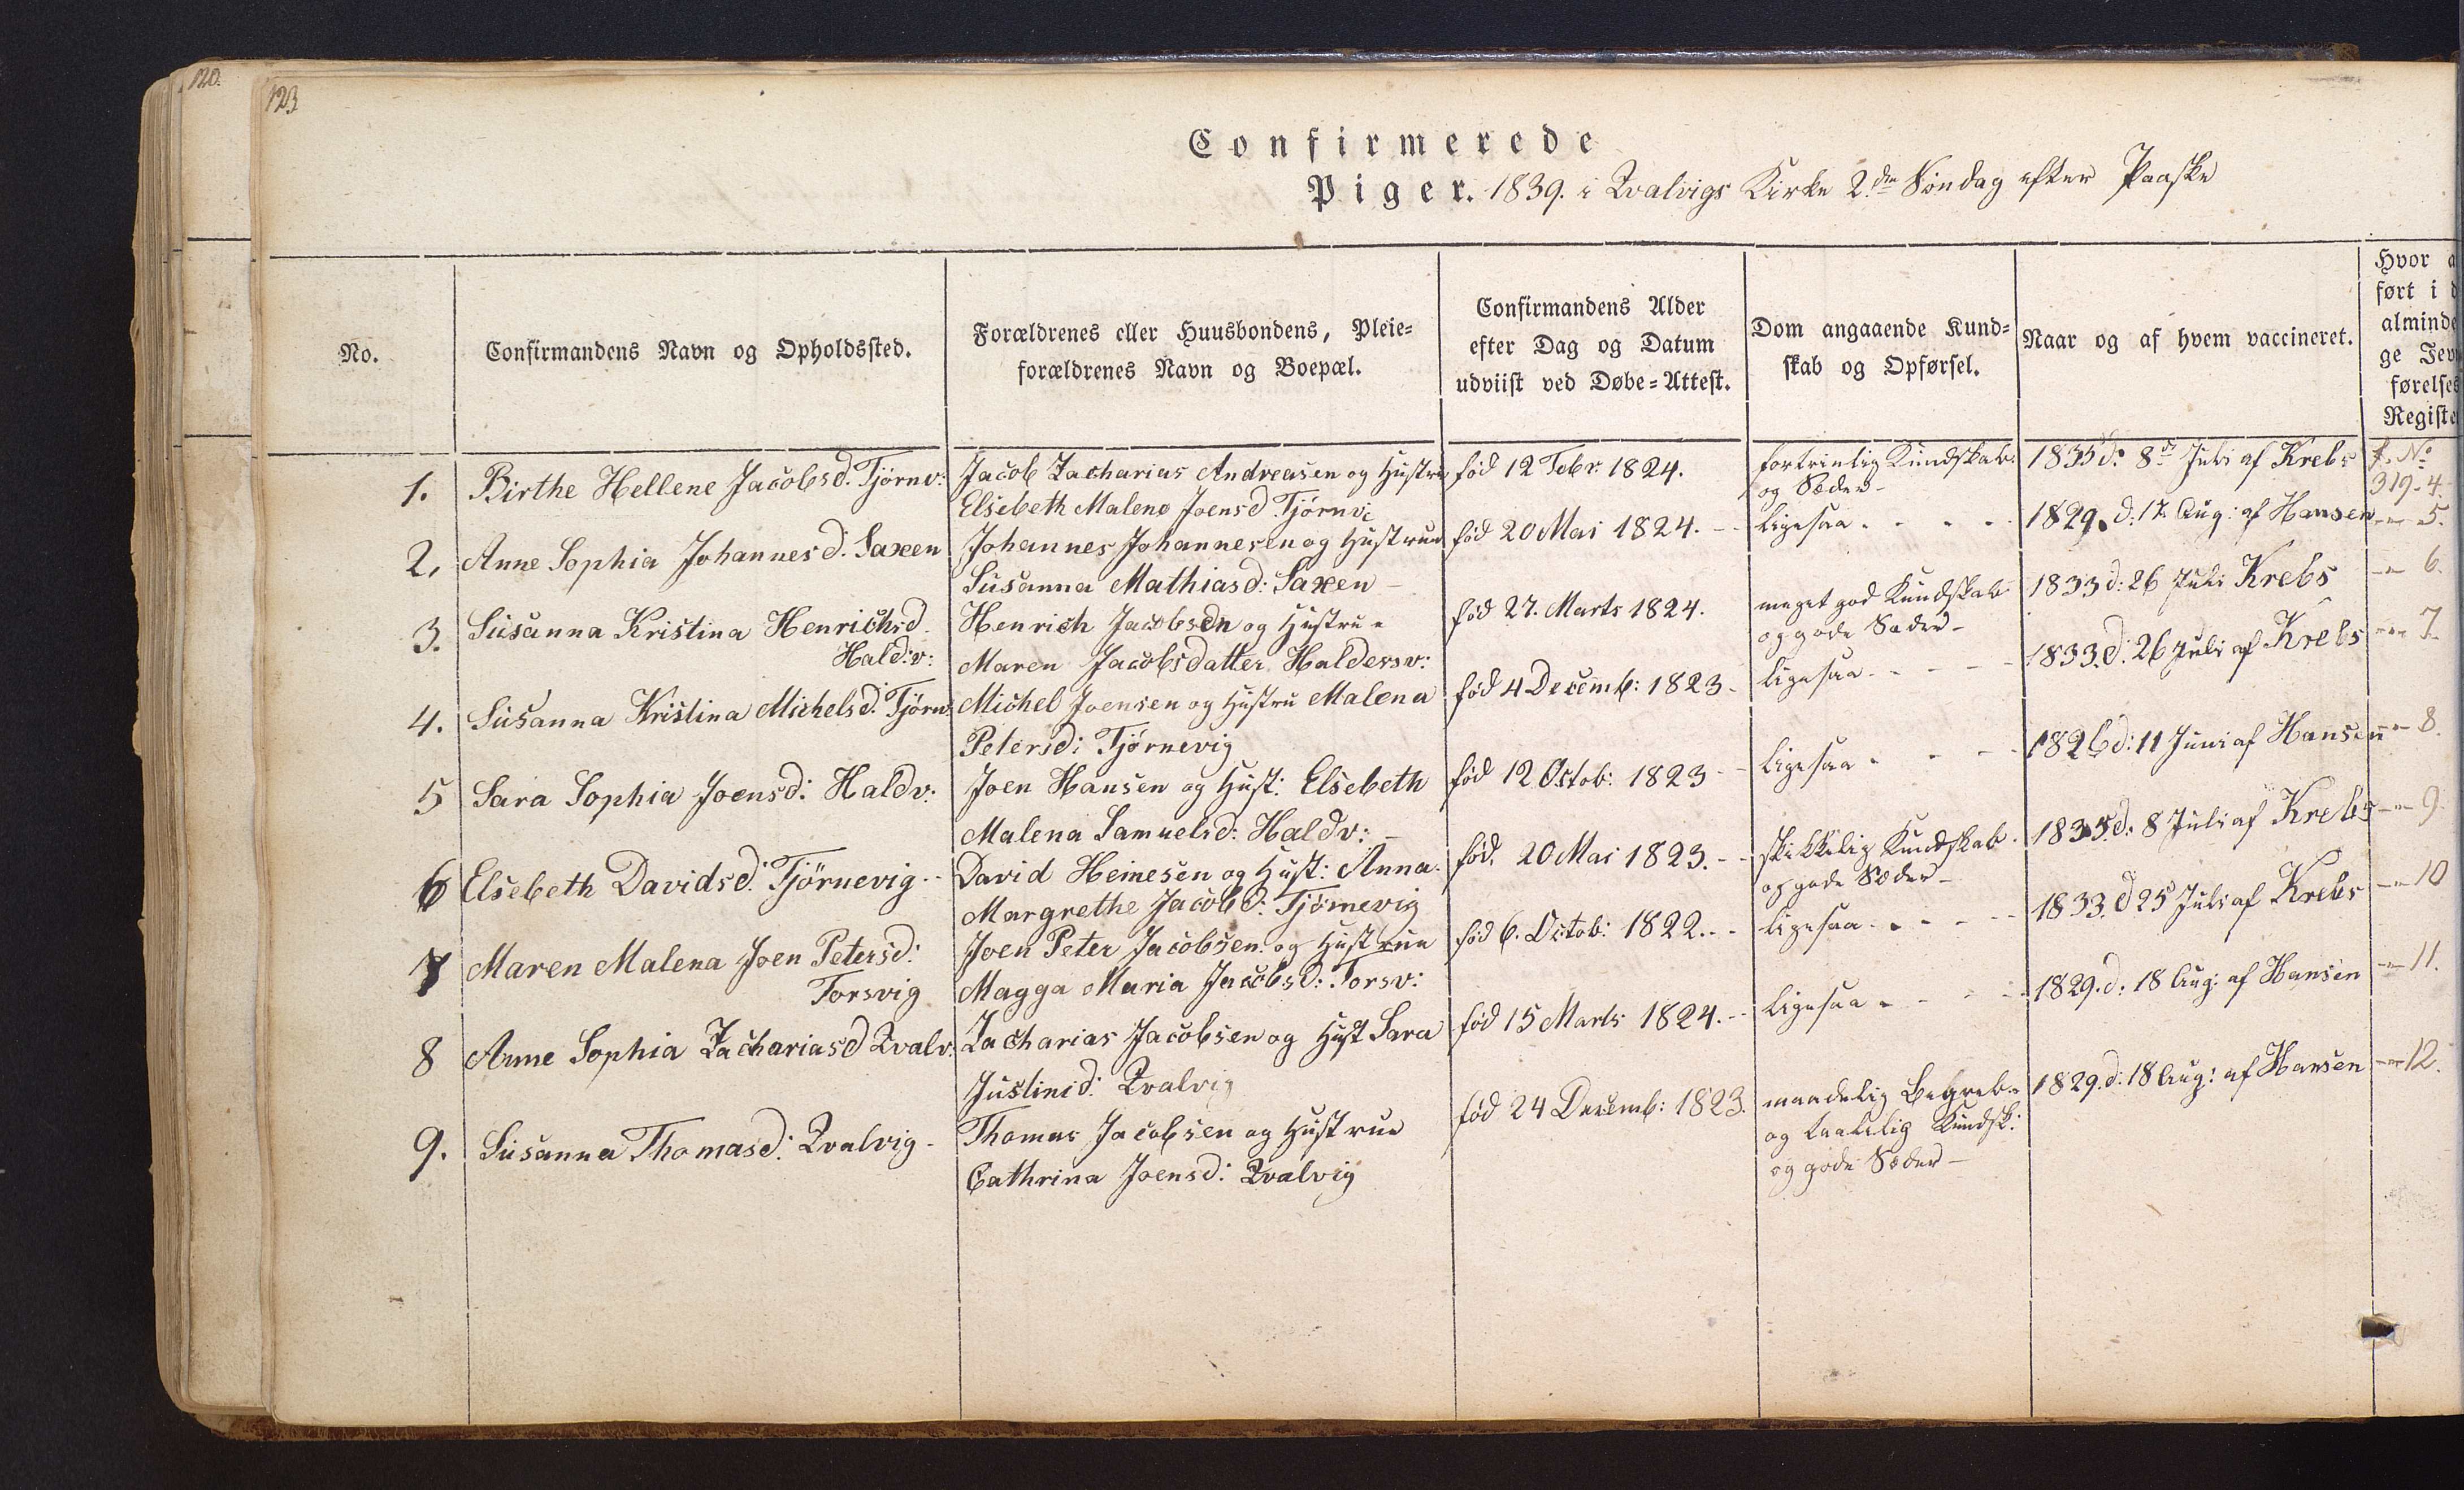 120.
123
Confirmerede
Piger. 1839. i Qvalvigs Kirke 2den Søndag efter Paaske
No.
Confirmandens Navn og Opholdssted.
Forældrenes eller Huusbondens, Pleie=
forældrenes Navn og Boepæl.
Confirmandens Alder
efter Dag og Datum
udviist ved Døbe=Attest.
Dom angaaende Kund=
skab og Opførsel.
Naar og af hvem vaccineret.
Hvor a
ført i d
alminde
ge Jev
førelses
Registe
1. Birthe Hellene Jacobsd. Tjørnv: Jacob Zacharias Andreasen og Hustru født 12 Febr. 1824. fortrinlig Kundskab 1835 d: 8de Juli af Krebs f. No
Elsebeth Malene Joensd. Tjørnv: og Sæder- 319-4.
2. Anne Sophia Johannesd. Saxen Johannes Johannesen og Hustrue fød 20 Mai 1824. - ligesaa - - - - 1829. d: 17 Aug: af Hansen -"- 5.
Susanna Mathiasd: Saxen -
3. Susanna Kristina Henrichsd. Henrich Jacobsen og Hustrue fød 27. Marts 1824. meget god Kundskab 1833 d: 26 Juli Krebs -"- 6.
Hald:v: Maren Jacobsdatter Haldersv: og gode Sæder-
4. Susanna Kristina Michelsd. Tjørnv Michel Joensen og Hustru Malena fød 4 Decemb: 1823 - ligesaa - - - 1833. d. 26 Juli af Krebs -"- 7.
Petersd: Tjørnevig
5 Sara Sophia Joensd: Haldv: Joen Hansen og Hust: Elsebeth fød 12 Octob: 1823 - ligesaa - - - 1826 d: 11 Juni af Hansen -"- 8.
Malena Samuelsd: Haldv: -
6 Elsebeth Davidsd. Tjörnevig - David Heinesen og Hust: Anna fød. 20 Mai 1823. - skikkelig Kundskab 1835 d: 8 Juli af Krebs -"- 9.
Margrethe Jacobsd: Tjörnevig og gode Sæder-
7 Maren Malena Joen Petersd: Joen Peter Jacobsen og Hustrue fød 6. Octob: 1822. - ligesaa - - - 1833. d 25 Juli af Krebs -"- 10
Torsvig Magga Maria Jacobsd: Torsv:
8 Anne Sophia Zachariasd Qvalv: Zacharias Jacobsen og Hust Sara fød 15 Marts 1824. - ligesaa - - - 1829. d: 18 Aug: af Hansen -"- 11.
Justinid: Qvalvig
9. Susanna Thomasd: Qvalvig - Thomas Jacobsen og Hustrue fød 24 Decemb: 1823. maadelig Begreb 1829. d: 18 Aug: af Hansen -"- 12.
Cathrina Joensd: Qvalvig og taalelig Kundsk:
og gode Sæder -